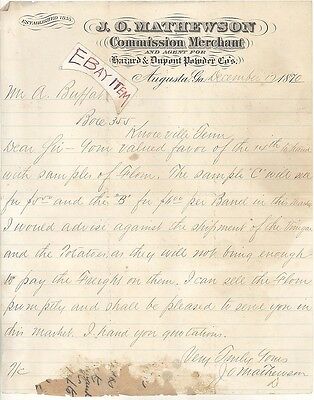 ESTABLISHED 1854.
J. O. MATHEWSON
Commission Merchant
AND AGENT FOR
Hazard & Dupont Powder Co's.
EBAY ITEM
Augusta, Ga. December 1890
Mr A. Buffat
Box 355
Knoxville Tenn
Dear Sir - Your valued favor of the to hand
with samples of Flour. The sample "C" will
for and the "B" for per Barrel in this Market
I would advise against the shipment of the Vinegar
and the Potatoes as they will not bring enough
to pay the Freight on them. I can sell the Flour
promptly and shall be pleased to serve you in
this market. I hand you quotations.
Very Truly Yours
J O Mathewson